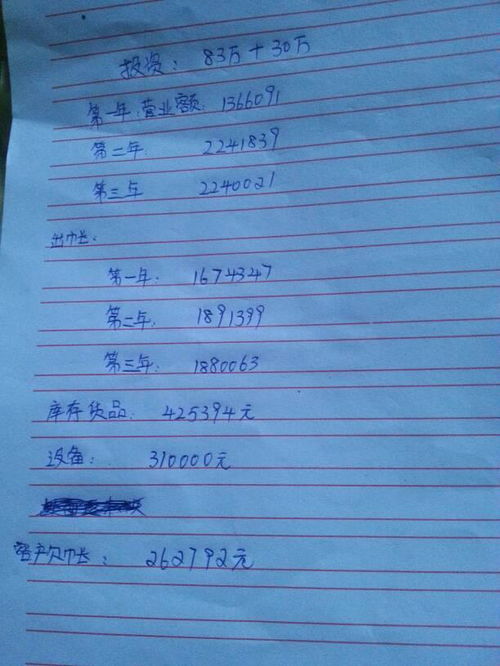 投资：83万+30万
第一年：营业额：1366091
第二年：2241839
第三年 2240021
出帐：
第一年：1674347
第二年：1891399
第三年：1880063
库存货品：425394元
设备：310000元
客户欠帐：262792元